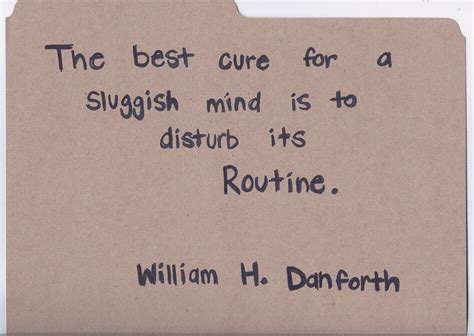 The best cure for a
sluggish mind is to
disturb its
Routine.
William H. Danforth